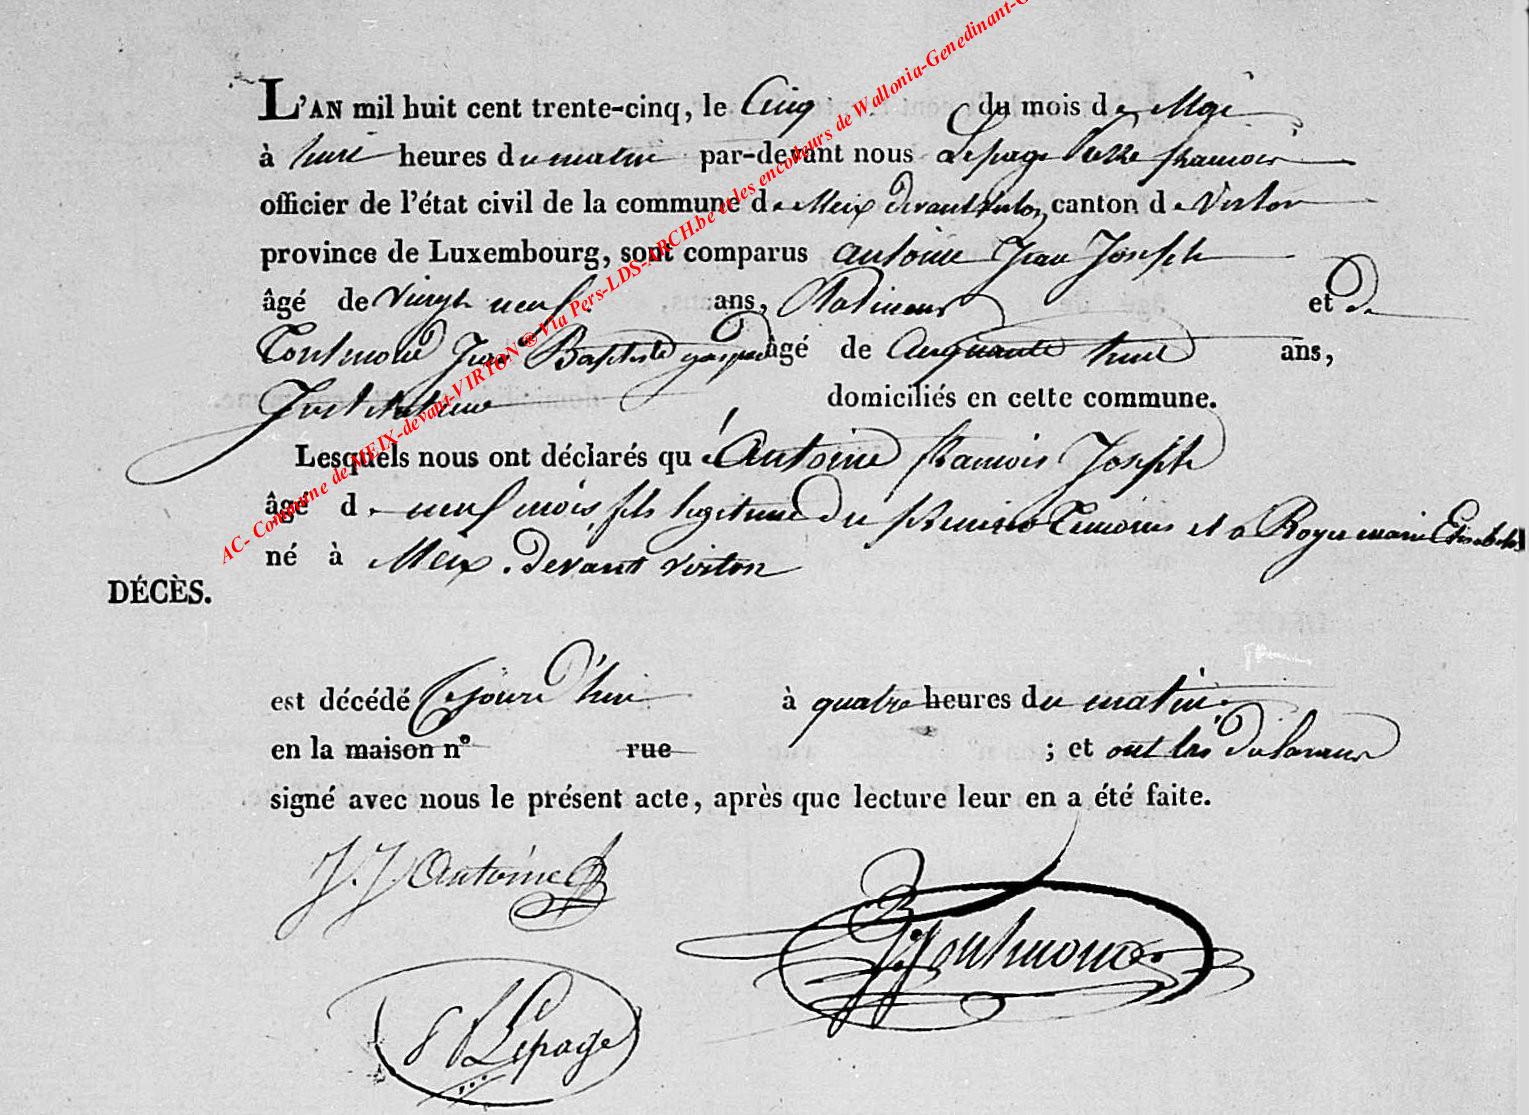 L'AN mil huit cent trente-cinq, le Cinq du mois de Mai
à huit heures du matin par-devant nous Lepage Pierre francois
officier de l'état civil de la commune de Meix devant virton, canton de Virton
province de Luxembourg, sont comparus Antoine Jean Joseph
âgé de Vingt neuf ans, et de
Jean Baptiste gaspard âgé de Cinquante huit ans,
domiciliés en cette commune.
Lesquels nous ont déclarés qu'Antoine francois Joseph
âgé de neuf mois fils legitime du premier temoins et a Royer marie Elisabeth
né à Meix devant virton
DÉCÈS.
est décédé Cejourd'hui à quatre heures du matin
en la maison n° rue ; et ont les
signé avec nous le présent acte, après que lecture leur en a été faite.
J. J. Antoine
P f Lepage
AC- Commune de MEIX-devant-VIRTON ® Via Pers-LDS-ARCH.be et les encodeurs de Wallonia-Genedinant-G